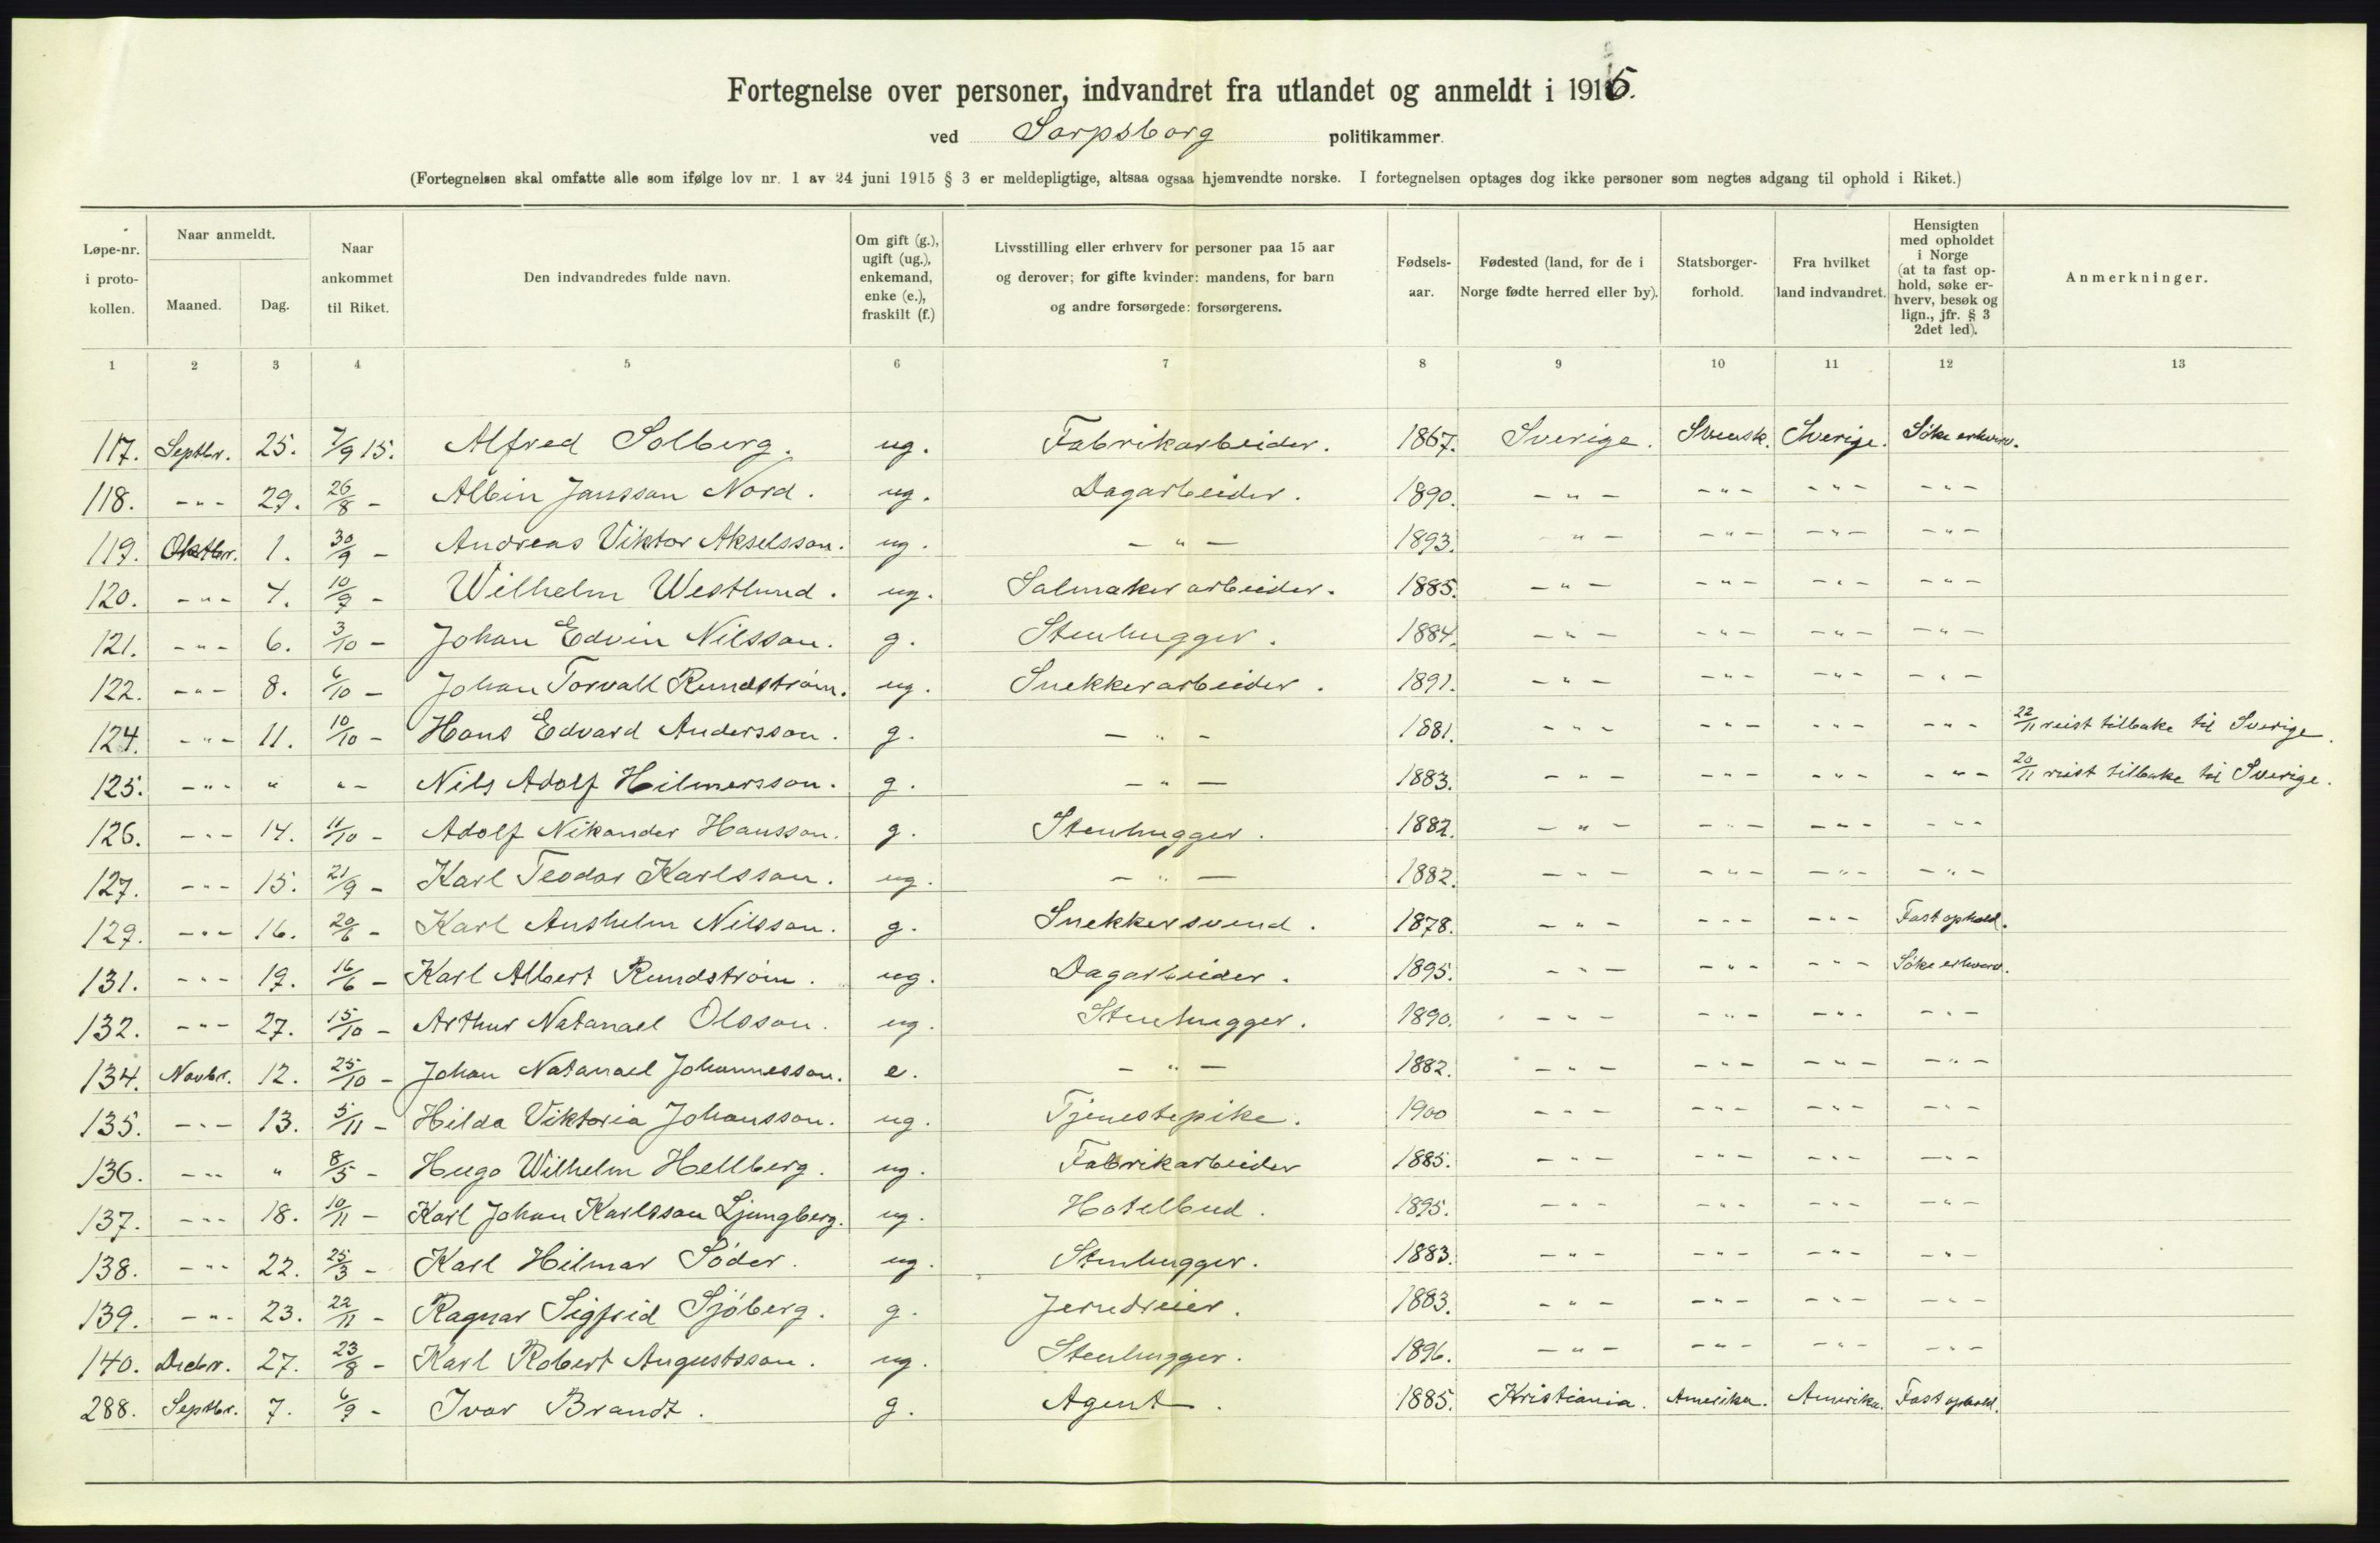 Fortegnelse over personer, indvandret fra utlandet og anmeldt i 1915.
ved Sarpsborg politikammer.
(Fortegnelsen skal omfatte alle som ifølge lov nr. 1 av 24 juni 1915 § 3 er meldepligtige, altsaa ogsaa hjemvendte norske. I fortegnelsen optages dog ikke personer som negtes adgang til ophold i Riket.)
Løpe-nr. i proto-kollen. Naar anmeldt. Maaned. Dag. Naar ankommet til Riket. Den indvandredes fulde navn. Om gift (g.), ugift (ug.), enkemand, enke (e.), fraskilt (f.) Livsstilling eller erhverv for personer paa 15 aar og derover; for gifte kvinder: mandens, for barn og andre forsørgede: forsørgerens. Fødsels-aar. Fødested (land, for de i Norge fødte herred eller by). Statsborger-forhold. Fra hvilket land indvandret. Hensigten med opholdet i Norge (at ta fast op-hold, søke er-hverv, besøk og lign., jfr. § 3 2det led). Anmerkninger.
1 2 3 4 5 6 7 8 9 10 11 12 13
117. Septbr. 25. 7/9 15. Alfred Solberg. ug. Fabrikarbeider. 1867. Sverige. Svensk. Sverige. Söke erhverv.
118. -"- 29. 26/8 - Albin Jansson Nord. ug. Dagarbeider. 1890. -"- -"- -"- -"-
119. Oktbr. 1. 30/9 - Andreas Viktor Akselsson. ug. -"- 1893. -"- -"- -"- -"-
120. -"- 4. 10/9 - Wilhelm Westlund. ug. Salmaker arbeider. 1885. -"- -"- -"- -"-
121. -"- 6. 3/10 - Johan Edvin Nilsson. g. Stenhugger. 1884. -"- -"- -"- -"-
122. -"- 8. 6/10 - Johan Torvall Rundström. ug. Snekkerarbeider. 1891. -"- -"- -"- -"-
124. -"- 11. 10/10 - Hans Edvard Andersson. g. -"- 1881. -"- -"- -"- -"- 22/11 reist tilbake til Sverige.
125. -"- " "- Nils Adolf Hilmersson. g. -"- 1883. -"- -"- -"- -"- 20/11 reist tilbake til Sverige.
126. -"- 14. 11/10 - Adolf Nikander Hansson. g. Stenhugger. 1882. -"- -"- -"- -"-
127. -"- 15. 21/9 - Karl Teodor Karlsson. ug. -"- 1882. -"- -"- -"- -"-
129. -"- 16. 20/6 - Karl Anshelm Nilsson. g. Snekkersvend. 1878. -"- -"- -"- Fast ophold.
131. -"- 19. 16/6 - Karl Albert Rundström. ug. Dagarbeider. 1895. -"- -"- -"- Söke erhverv.
132. -"- 27. 15/10 - Arthur Natanael Olsson. ug. Stenhugger. 1890. -"- -"- -"- -"-
134. Novbr. 12. 25/10 - Johan Natanael Johannesson. e. -"- 1882. -"- -"- -"- -"-
135. -"- 13. 5/11 - Hilda Viktoria Johansson. ug. Tjenestepike. 1900 -"- -"- -"- -"-
136. -"- " 8/5 - Hugo Wilhelm Hellberg. ug. Fabrikarbeider 1885. -"- -"- -"- -"-
137. -"- 18. 10/11 - Karl Johan Karlsson Ljungberg. ug. Hotelbud. 1895. -"- -"- -"- -"-
138. -"- 22. 25/3 - Karl Hilmar Söder. ug. Stenhugger. 1883. -"- -"- -"- -"-
139. -"- 23. 22/11 - Ragnar Sigfrid Sjöberg. g. Jerndreier. 1883. -"- -"- -"- -"-
140. Decbr. 27. 23/8 - Karl Robert Augustsson. ug. Stenhugger. 1896. -"- -"- -"- -"-
288. Septbr. 7. 6/9 - Ivar Brandt. g. Agent. 1885. Kristiania. Amerika. Amerika. Fast ophold.